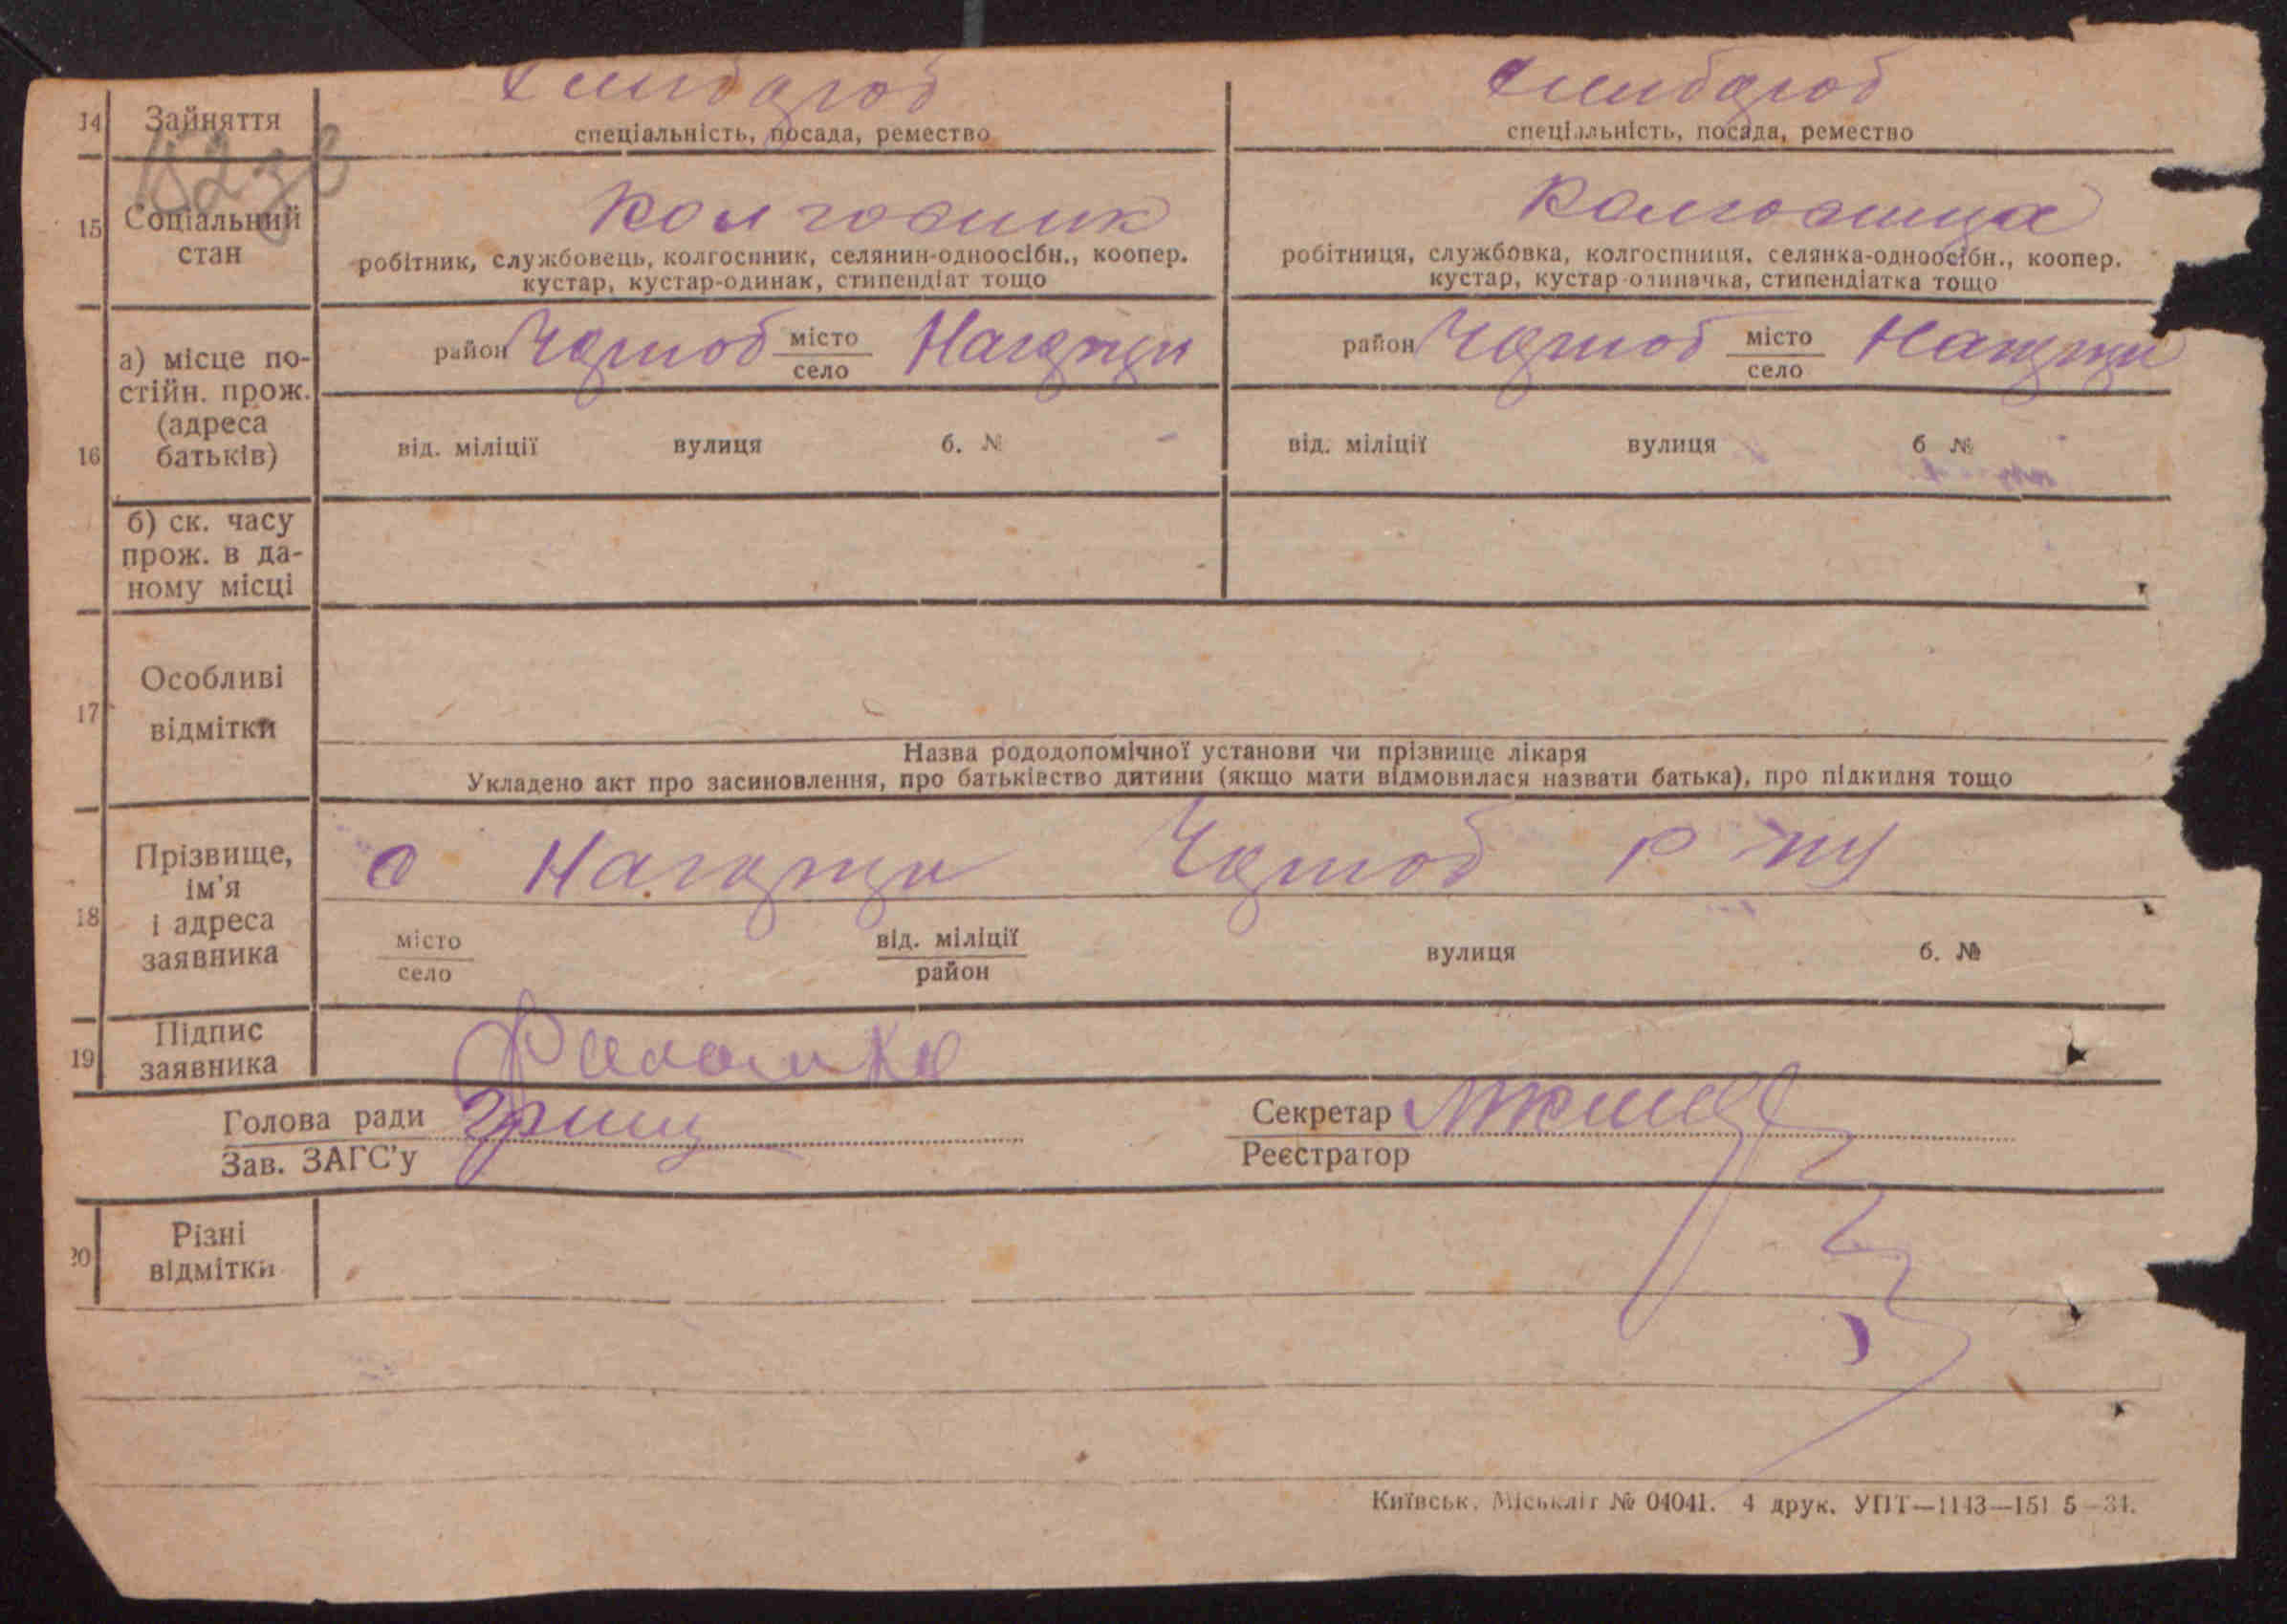 14 Зайняття
спеціальність, посада, ремество
спеціальність, посада, ремество
15 Соціальний стан
колгосник
робітник, службовець, колгоспник, селянин-одноосібн., коопер.
кустар, кустар-одинак, стипендіат тощо
колгосница
робітниця, службовка, колгоспниця, селянка-одноосібн., коопер.
кустар, кустар-одиначка, стипендіатка тощо
16
а) місце по-
стійн. прож.
(адреса
батьків)
район Чорноб місто
село
район Чорноб місто
село
від. міліції вулиця б. №
від. міліції вулиця б №
б) ск. часу
прож. в да-
ному місці
17 Особливі
відмітки
Назва рододопомічної установи чи прізвище лікаря
Укладено акт про засиновлення, про батьківство дитини (якщо мати відмовилася назвати батька), про підкидня тощо
18 Прізвище,
ім'я
і адреса
заявника
с Чорноб р ну
місто
село
від. міліції
район
вулиця б. №
19 Підпис
заявника
Голова ради
Зав. ЗАГС'у
Секретар
Реєстратор
20 Різні
відмітки
Київськ. Міськліт № 04041. 4 друк. УПТ—1143—151 5—34.